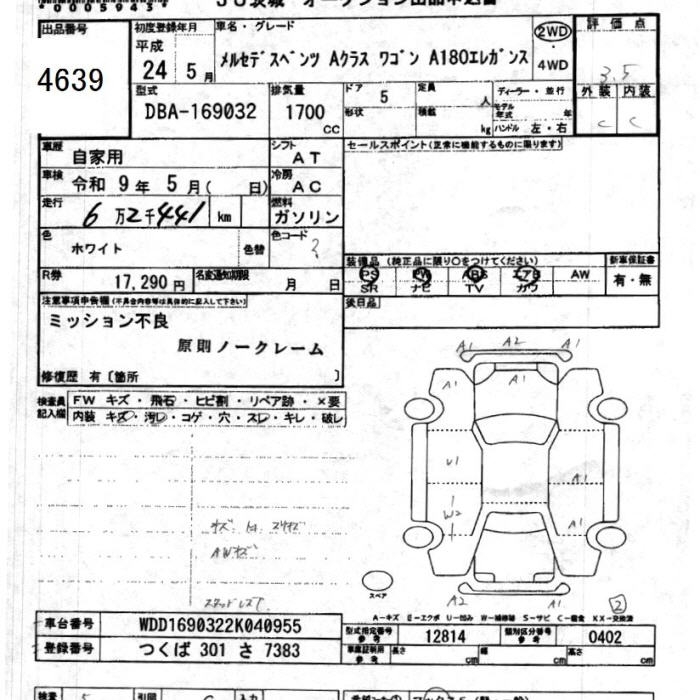 0005945
JU茨城 オークション出品申込書
出品番号
4639
初度登録年月
平成
24 5月
車名・グレード
メルセデスベンツ Aクラス ワゴン A180エレガンス
2WD
4WD
評価点
3.5
型式
DBA-169032
排気量
1700
CC
ドア
5
形状
定員
人
積載
kg
ディーラー・並行
モデル年式
年
ハンドル 左・右
外装 内装
C C
車歴
自家用
シフト
AT
セールスポイント(正常に機能するものに限ります)
車検
令和 9年 5月( 日)
冷房
AC
走行
6万2千441 km
燃料
ガソリン
色
ホワイト
色替
色コード
?
装備品(純正品に限り○をつけてください)
新車保証書
PS PW ABS エアB AW
SR ナビ TV カワ
有・無
R券
17,290円
名変通知期限
月 日
後日品
注意事項申告欄(不具合内容等は具体的に記入して下さい)
ミッション不良
原則ノークレーム
修復歴 有〔箇所 〕
検査員記入欄
FW キズ・飛石・ヒビ割・リペア跡・×要
内装 キズ・汚レ・コゲ・穴・スレ・キレ・破レ
A1 A2 A1
A1 A1 A1
U1
A1
W2
A1
AWキズ
スペア
A2 A1
2
A-キズ E-エクボ U-凹み W-補修跡 S-サビ C-腐食 XX-交換済
車台番号
WDD1690322K040955
型式指定番号
参考
12814
類別区分番号
参考
0402
登録番号
つくば 301 さ 7383
車庫証明用
参考
長さ cm 幅 cm 高さ cm